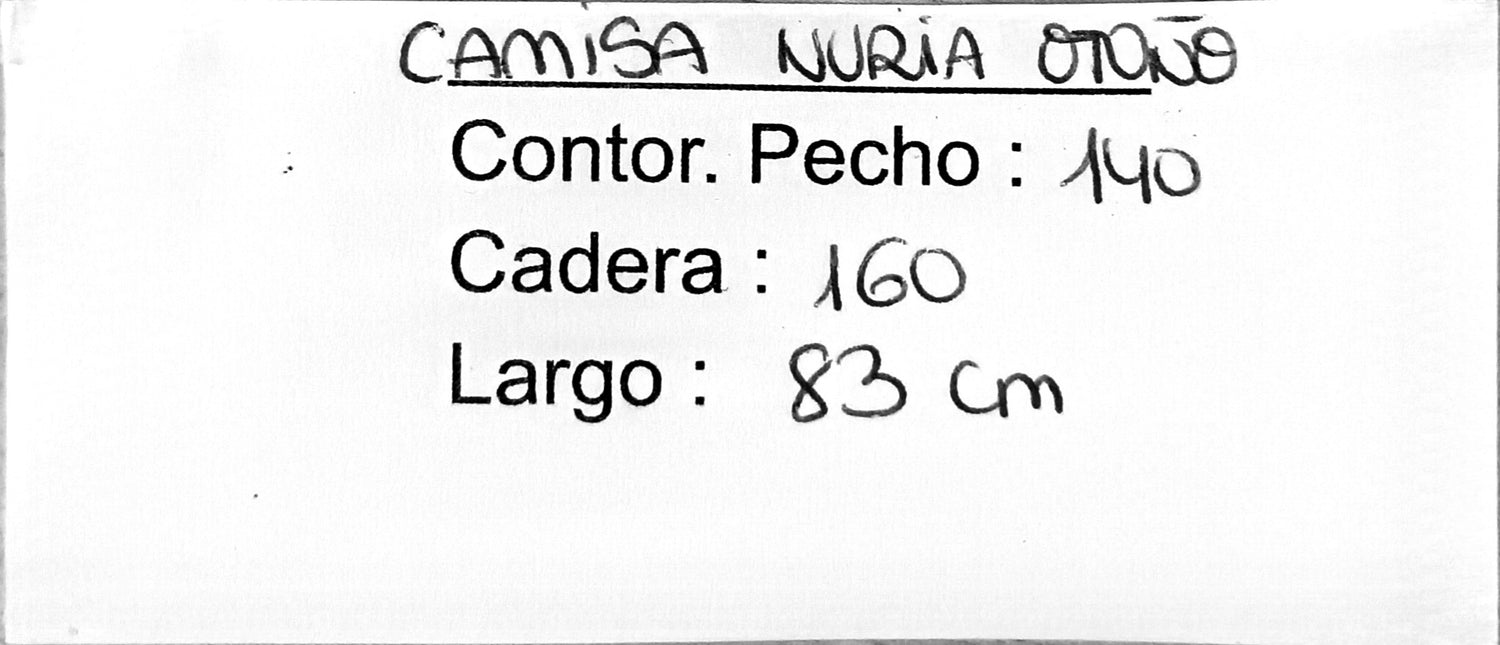 CAMISA NURIA OTOÑO
Contor. Pecho : 140
Cadera : 160
Largo : 83 cm